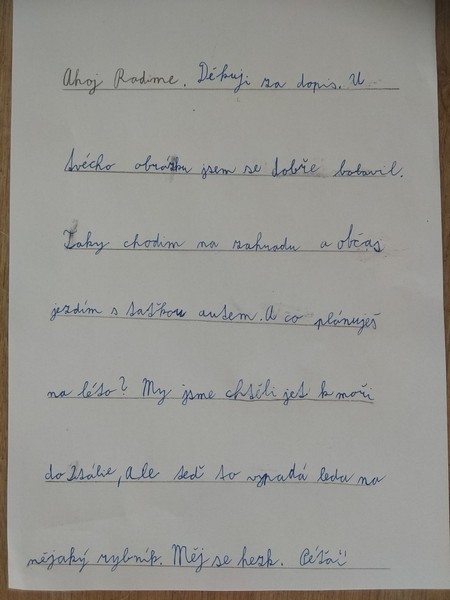 Ahoj Radime. Děkuji za dopis. U
tvécho obrázku jsem se dobře bobavil.
Taky chodim na zahradu a občas
jezdím s taťkou autem. A co plánuješ
na léto? My jsme chtěli jet k moři
do Itálie, ale teď to vypadá leda na
nějaký rybník. Měj se hezk. Péťa